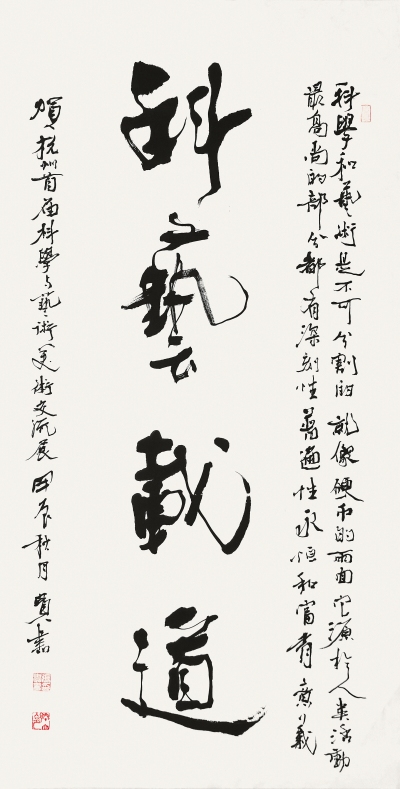 科學和藝術是不可分割的就像硬币的两面它源於人类活動
最高尚的部分都有深刻性普遍性永恒和富有意義
科藝載道
賀杭州首届科學与藝術美術交流展甲辰秋月